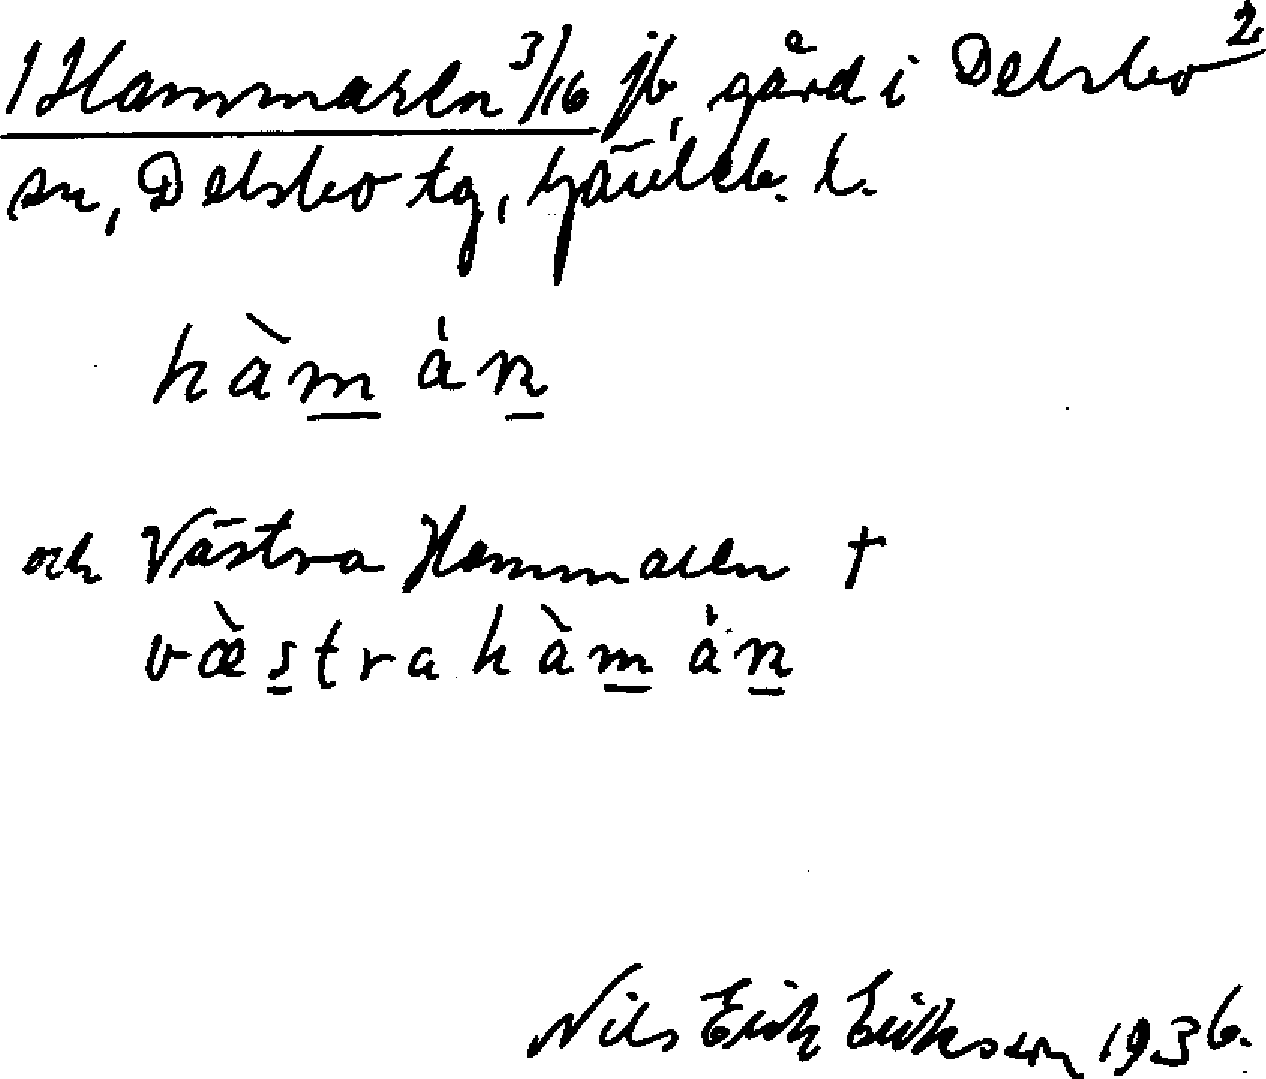 1 Hammaren 3/16 jb, gård i Delsbo 2
sn, Delsbo tg, Gävleb. l.
hàm án
och Västra Hammaren †
væ̀stra hàm án
Nils Erik Erikson 1936.